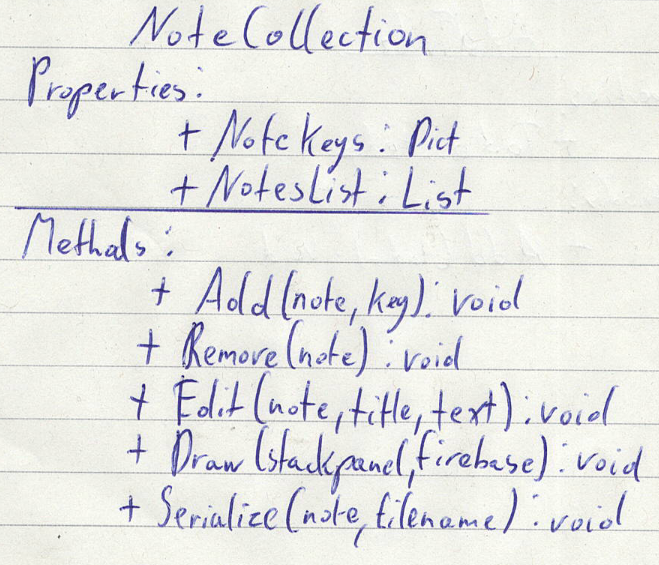 NoteCollection
Properties:
+ NoteKeys: Dict
+ NotesList: List
Methods:
+ Add(note, key): void
+ Remove(note): void
+ Edit(note, title, text): void
+ Draw(stackpanel, firebase): void
+ Serialize(note, filename): void